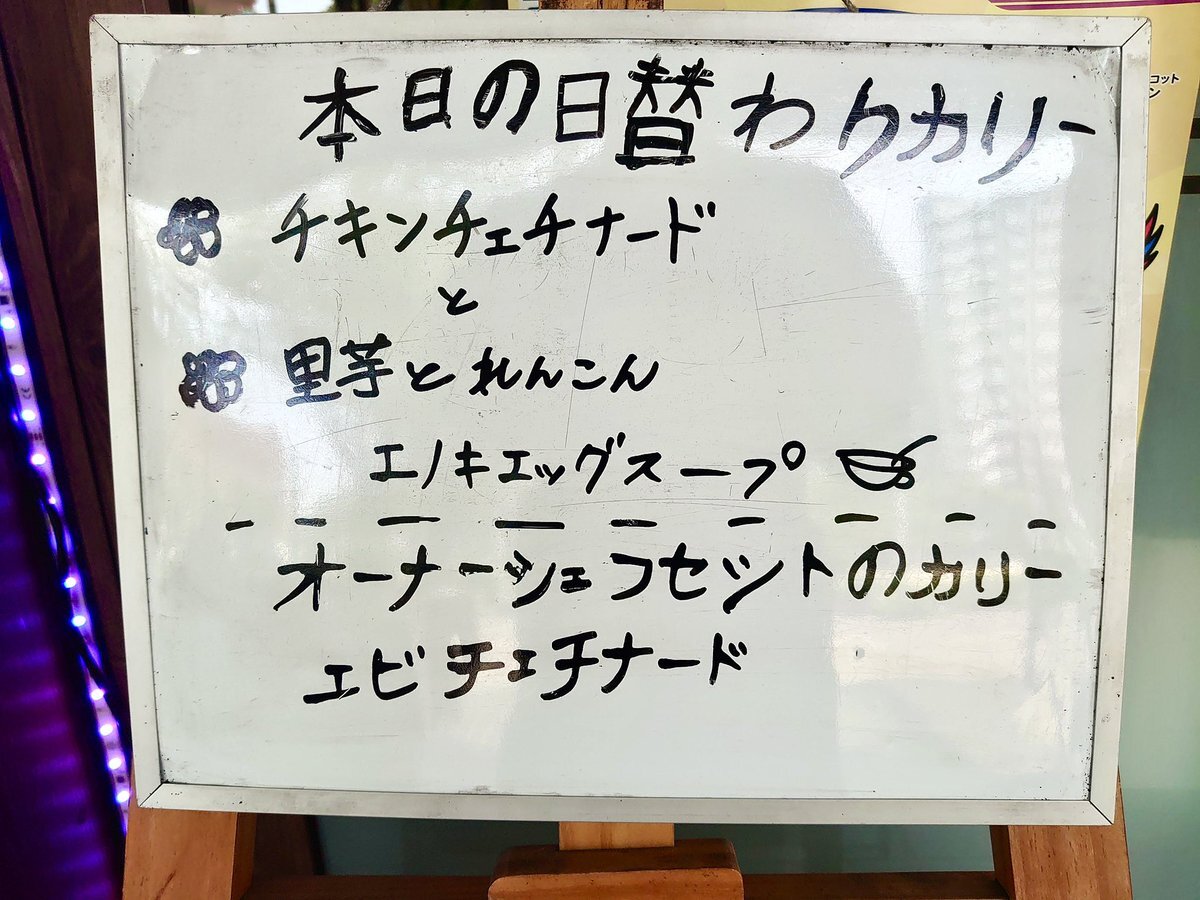 本日の日替わりカリー
チキンチェチナード
と
里芋とれんこん
エノキエッグスープ
オーナーシェフセットのカリー
エビチェチナード
コット
ン